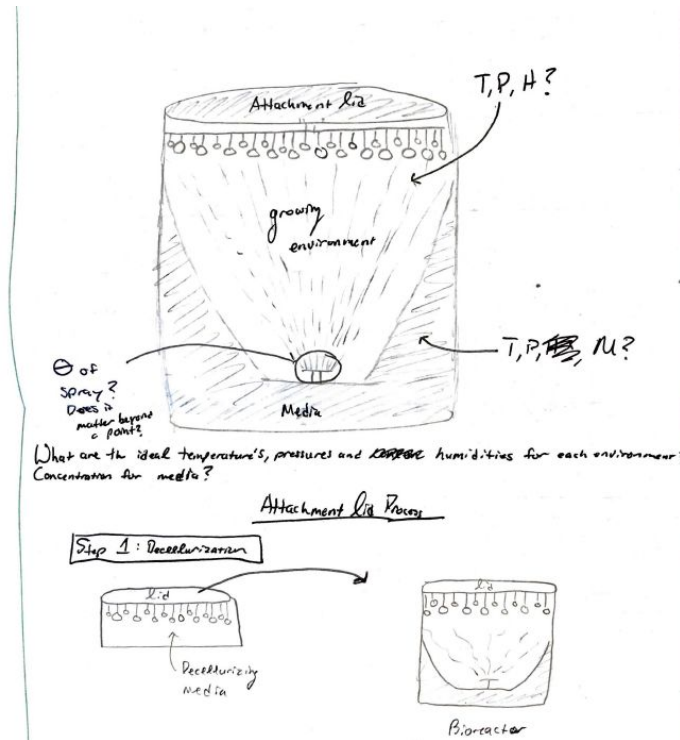 Attachment lid
T, P, H?
growing
environment
T, P, M?
Θ of
spray?
Does it
matter beyond
a point?
Media
What are the ideal temperature's, pressures and humidities for each environment?
Concentration for media?
Attachment Lid Process
Step 1: Decellurization
lid
Decellurizing
media
lid
Bioreactor